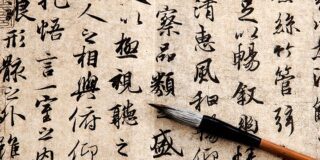 絲竹管弦
足以暢叙幽
清惠風和暢
察品類之盛
以極視聽之
之相與俯仰
抱悟言一室之内
浪形骸之外雖